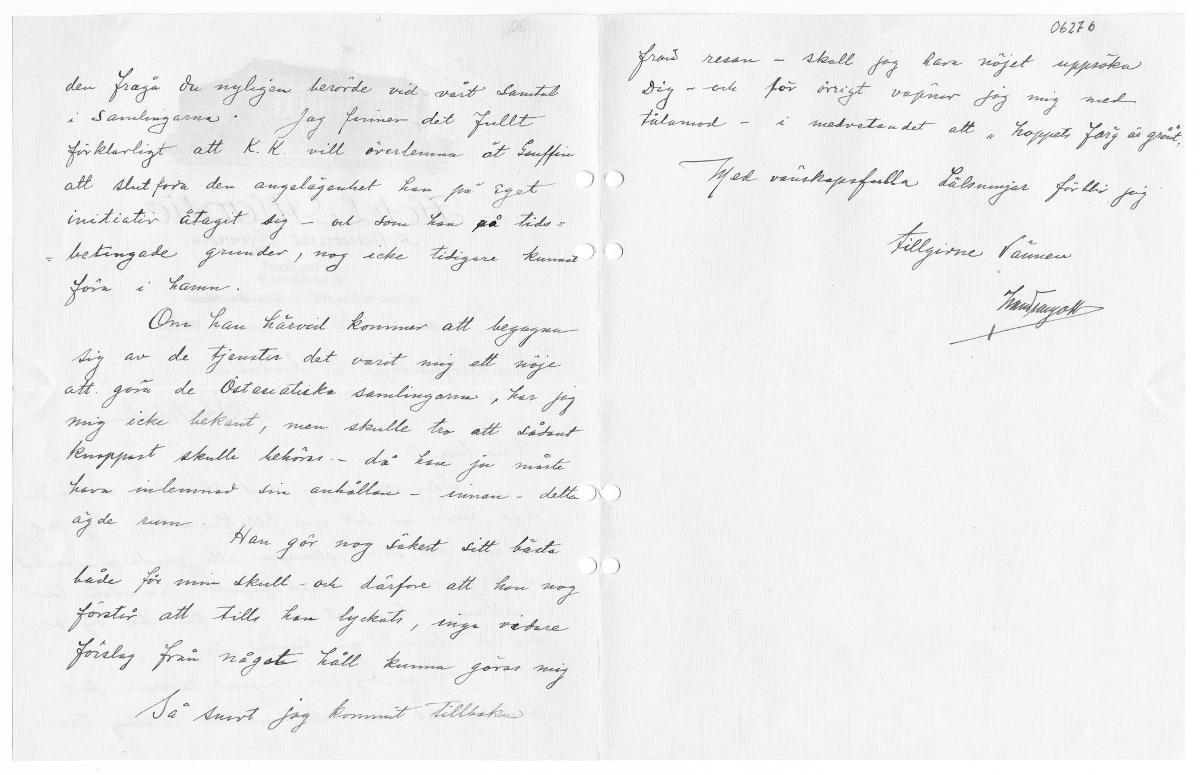 den fråga du nyligen berörde vid vårt samtal
i samlingarna. Jag finner det fullt
förklarligt att K.K. vill överlemna åt Gauffin
att slutföra den angelägenhet han på eget
initiativ åtaget sig – och som han på tids=
=betingade grunder, nog icke tidigare kunnat
föra i hamn.
Om han härvid kommer att begagna
sig av de tjenster det varit mig ett nöje
att göra de Ostasiatiska samlingarna, har jag
mig icke bekant, men skulle tro att sådant
knappast skulle behövas – då han ju måste
hava inlemnad sin anhållan – innan – detta
ägde rum.
Han gör nog säkert sitt bästa
både för min skull – och därfore att han nog
förstår att tills han lyckats, inga vidare
förslag från något håll kunna göras mig
Så snart jag kommit tillbaka
06276
från resan – skall jag hava nöjet uppsöka
Dig – och för övrigt väpnar jag mig med
tålamod – i medvetandet att "hoppets färg är grönt"
Med vänskapsfulla hälsningar förblir jag
tillgivne Vännen